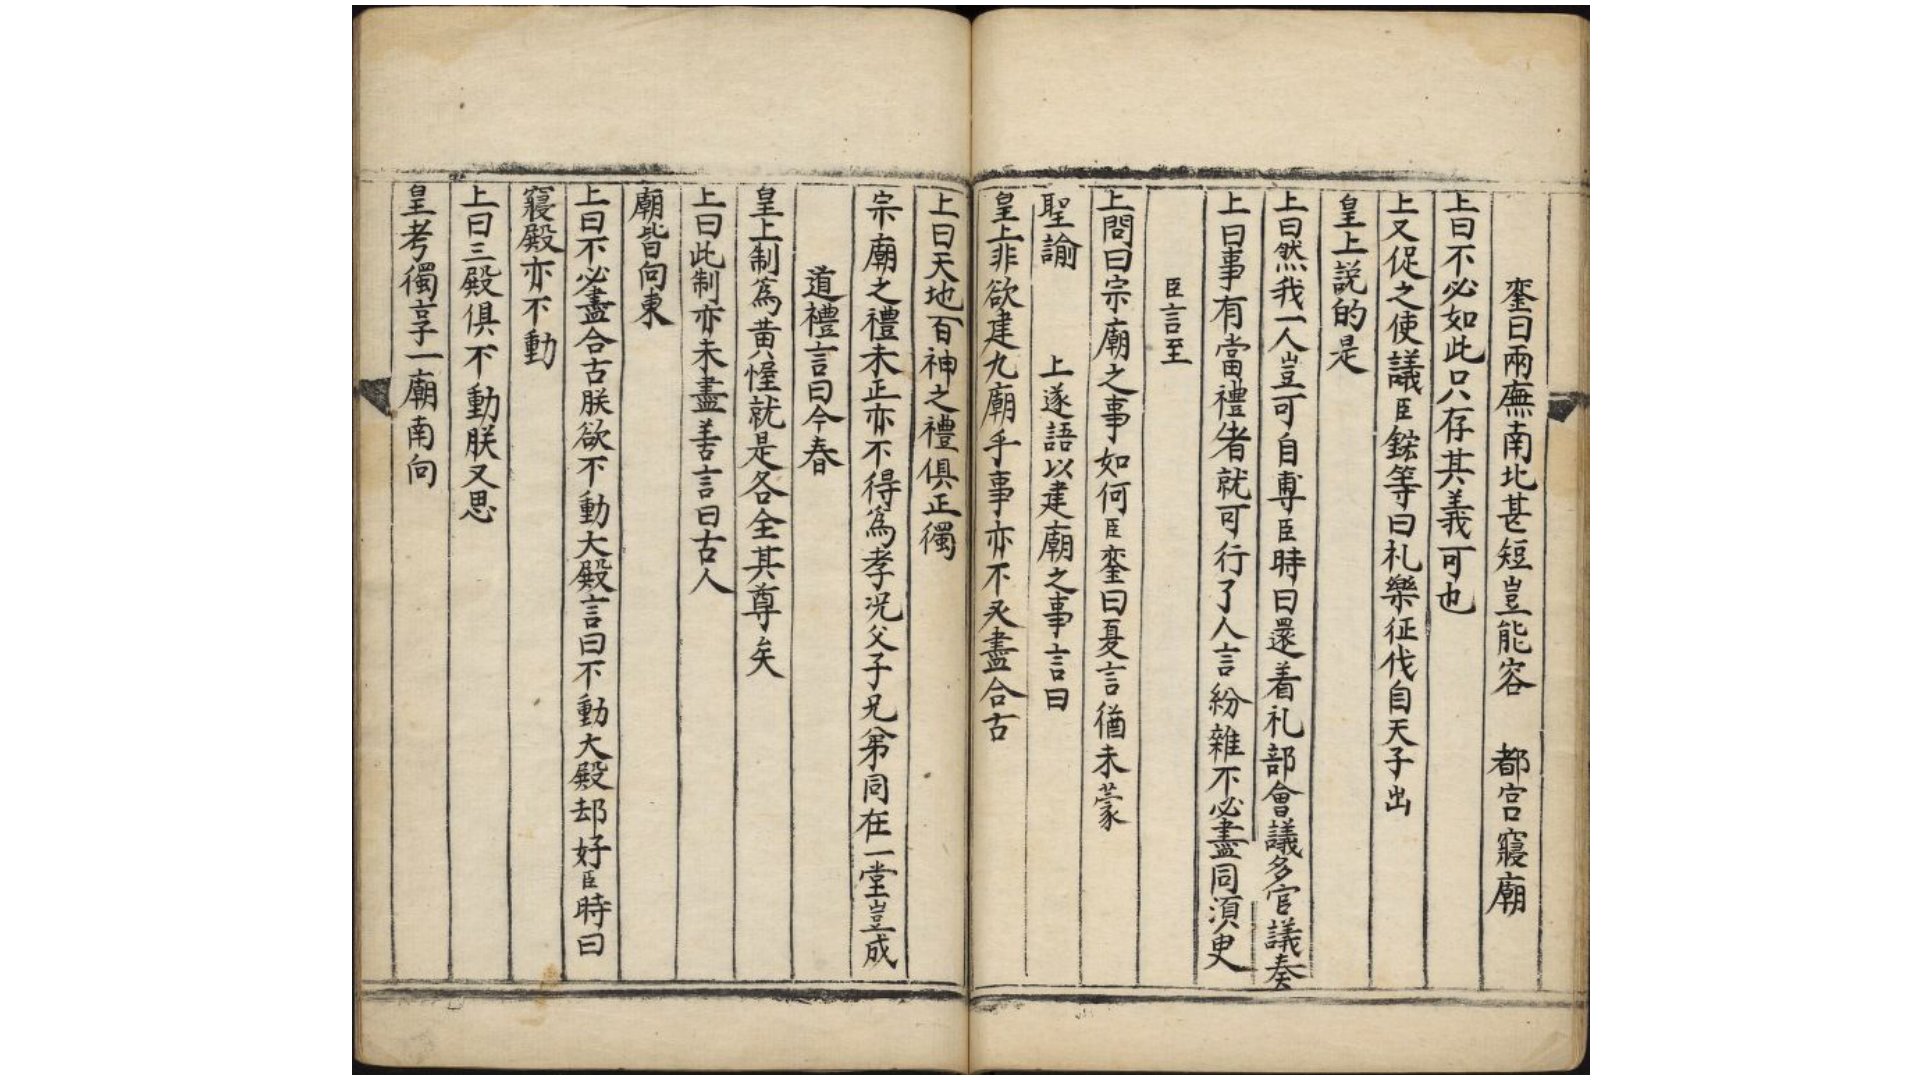 鑾曰兩廡南北甚短豈能容　都宫寢廟
上曰不必如此只存其義可也
上又促之使議臣鋐等曰礼樂征伐自天子出
皇上説的是
上曰然我一人豈可自專臣時曰還着礼部會議多官議奏
上曰事有當禮者就可行了人言紛雜不必盡同湏臾
臣言至
上問曰宗廟之事如何臣鑾曰夏言猶未蒙
聖諭　　上遂語以建廟之事言曰
皇上非欲建九廟乎事亦不必盡合古
上曰天地百神之禮俱正獨
宗廟之禮未正亦不得為孝况父子兄弟同在一堂豈成
道禮言曰今春
皇上制為黄幄就是各全其尊矣
上曰此制亦未盡善言曰古人
廟皆向東
上曰不必盡合古朕欲不動大殿言曰不動大殿却好臣時曰
寢殿亦不動
上曰三殿俱不動朕又思
皇考獨享一廟南向